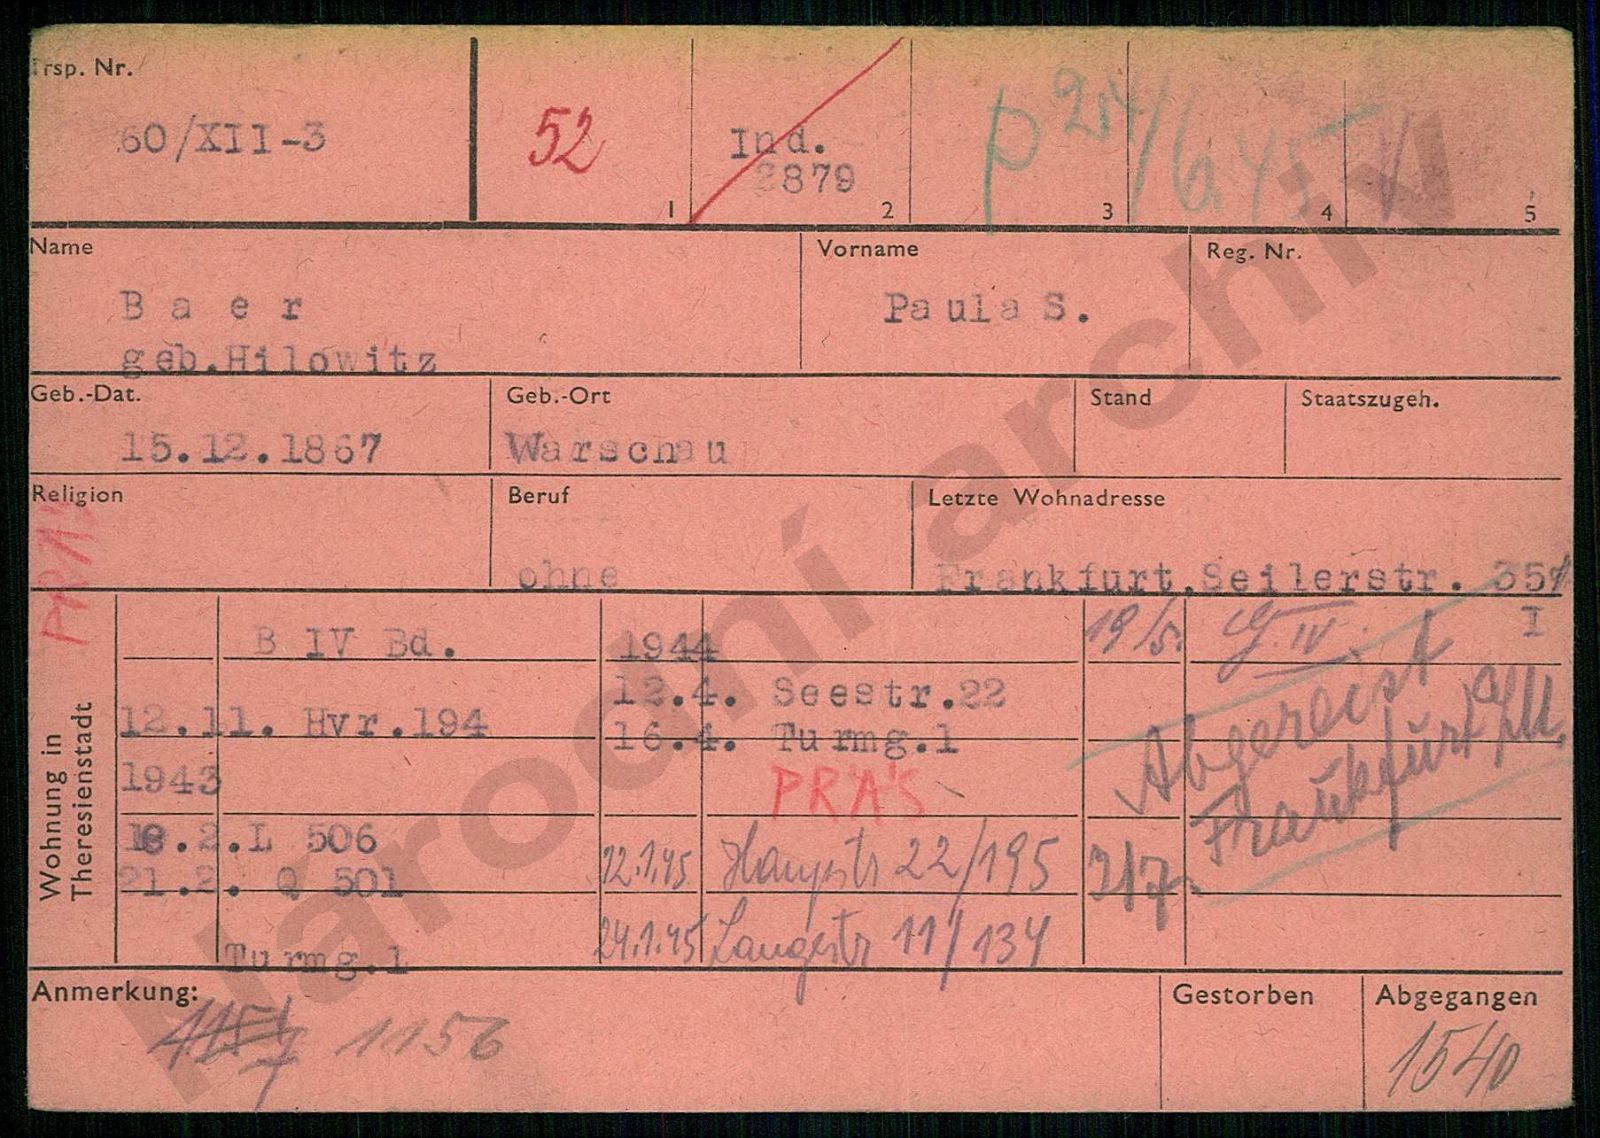 Trsp. Nr.
60/XII-3
52
Ind.
8879
1 2 3 4 5
Name
Vorname
Reg. Nr.
B a e r
Paula S.
geb.Hilowitz
Geb.-Dat.
Geb.-Ort
Stand
Staatszugeh.
15.12.1867
Warschau
Religion
Beruf
Letzte Wohnadresse
ohne
Frankfurt,Seilerstr. 35
I
PRA'S
Wohnung in
Theresienstadt
B IV Bd.
12.11. Hvr.194
1943
18.2.L 506
21.2. Q 501
Turmg.1
1944
12.4. Seestr.22
16.4. Turmg.1
PRA'S
12.1.45 22/195
24.1.45 Langestr 11/134
19/5. G. IV.
Abgereist
Frankfurt a/M.
Anmerkung:
1156
Gestorben
Abgegangen
1540
Národní archiv